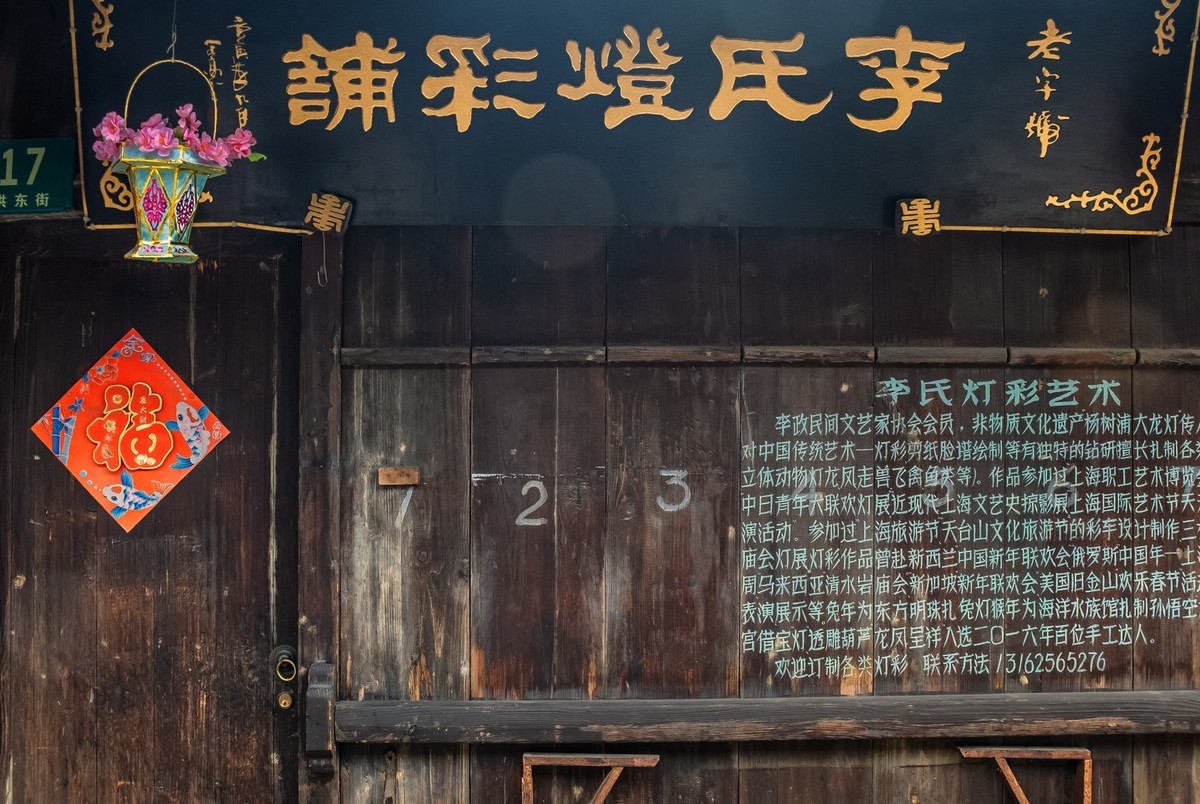 老字號
李氏燈彩舖
17
洪东街
福
1
2
3
李氏灯彩艺术
李政民间文艺家协会会员，非物质文化遗产杨树浦大龙灯传人
对中国传统艺术一灯彩剪纸脸谱绘制等有独特的钻研擅长扎制各
立体动物灯龙凤走兽飞禽鱼类等）。作品参加过上海职工艺术博览
中日青年大联欢灯展近现代上海文艺史掠影展上海国际艺术节天
演活动。参加过上海旅游节天台山文化旅游节的彩车设计制作三
庙会灯展灯彩作品曾赴新西兰中国新年联欢会俄罗斯中国年一上
周马来西亚清水岩庙会新加坡新年联欢会美国旧金山欢乐春节活
表演展示等兔年为东方明珠扎兔灯猴年为海洋水族馆扎制孙悟空
宫借宝灯透雕葫芦龙凤呈祥入选二〇一六年百位手工达人。
欢迎订制各类灯彩 联系方法13162565276